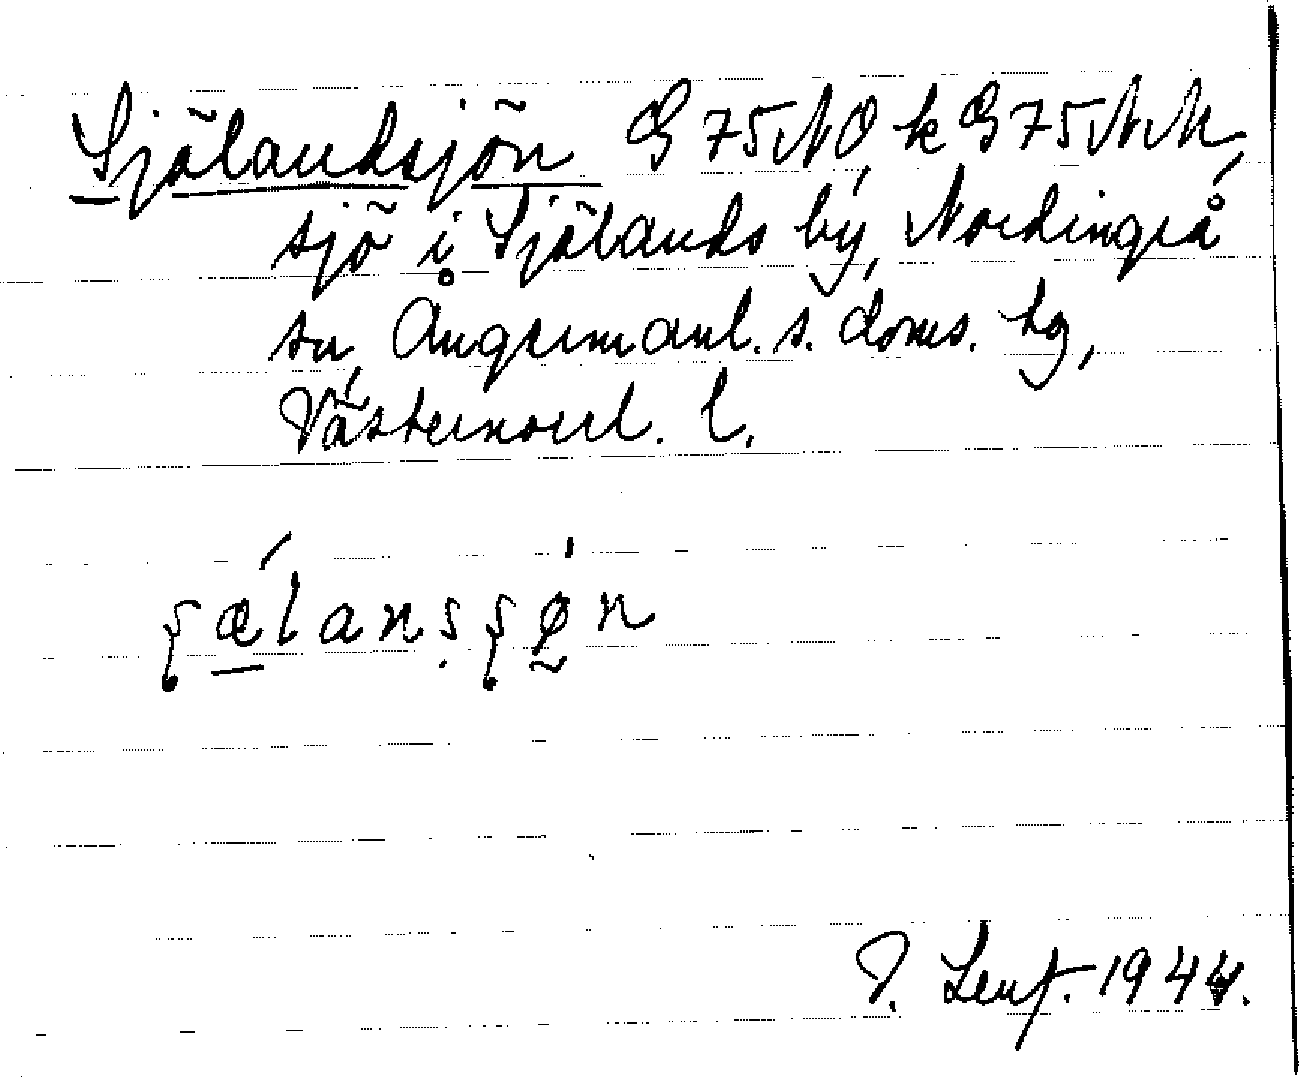 Själandsjön G 75 NO, k G 75 NN,
sjö i Själands by, Nordingrå
sn, Ångermanl. s. doms. tg,
Västernorrl. l.
ʂælanṣʂø̰n
1944.